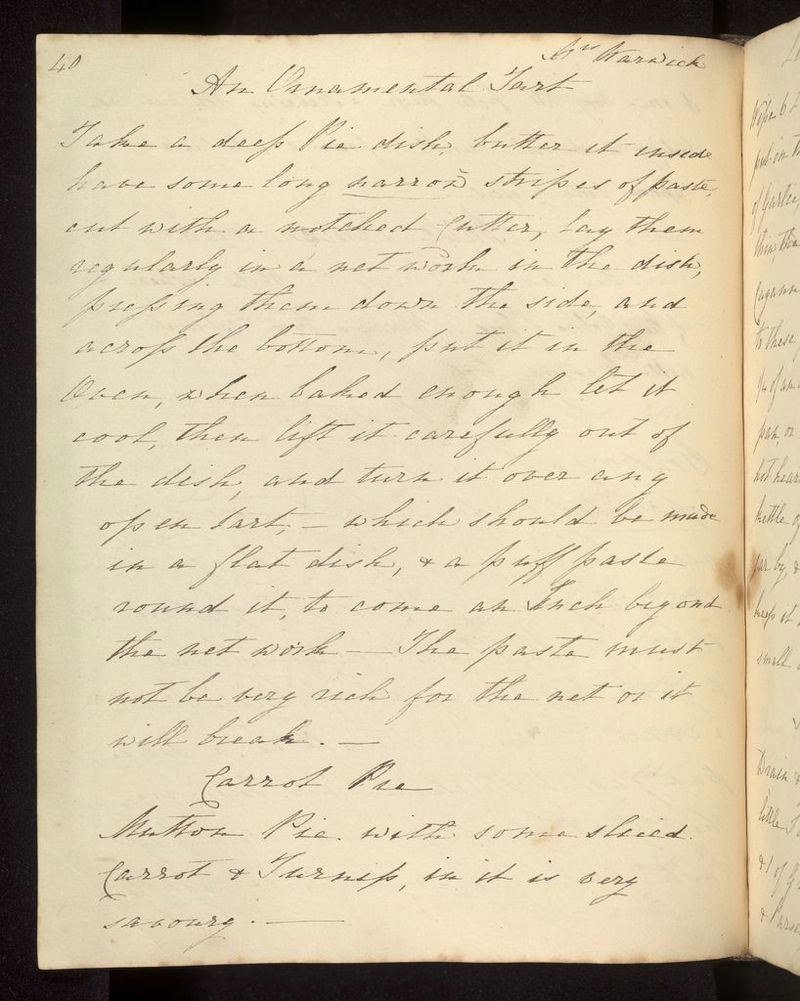 40
Mrs Warwick
An Ornamental Tart
Take a deep Pie dish, butter it inside
have some long narrow stripes of paste,
cut with a notched Cutter, lay them
regularly in a net work in the dish,
pressing them down the side, and
across the bottom, put it in the
Oven, when baked enough let it
cool, then lift it carefully out of
the dish, and turn it over any
open tart, — which should be made
in a flat dish, & a puff paste
round it, to come an Inch beyond
the net work — The paste must
not be very rich for the net or it
will break. —
Carrot Pie
Mutton Pie with some sliced
Carrot & Turnip, in it is very
savoury. —
Wipe 6
put in th
of Garlic
thin
Cayenn
to these
1/4 of an
pan, or
hot hear
kettle of
jar by, &
keep it
small
Drain &
little
& 1 of